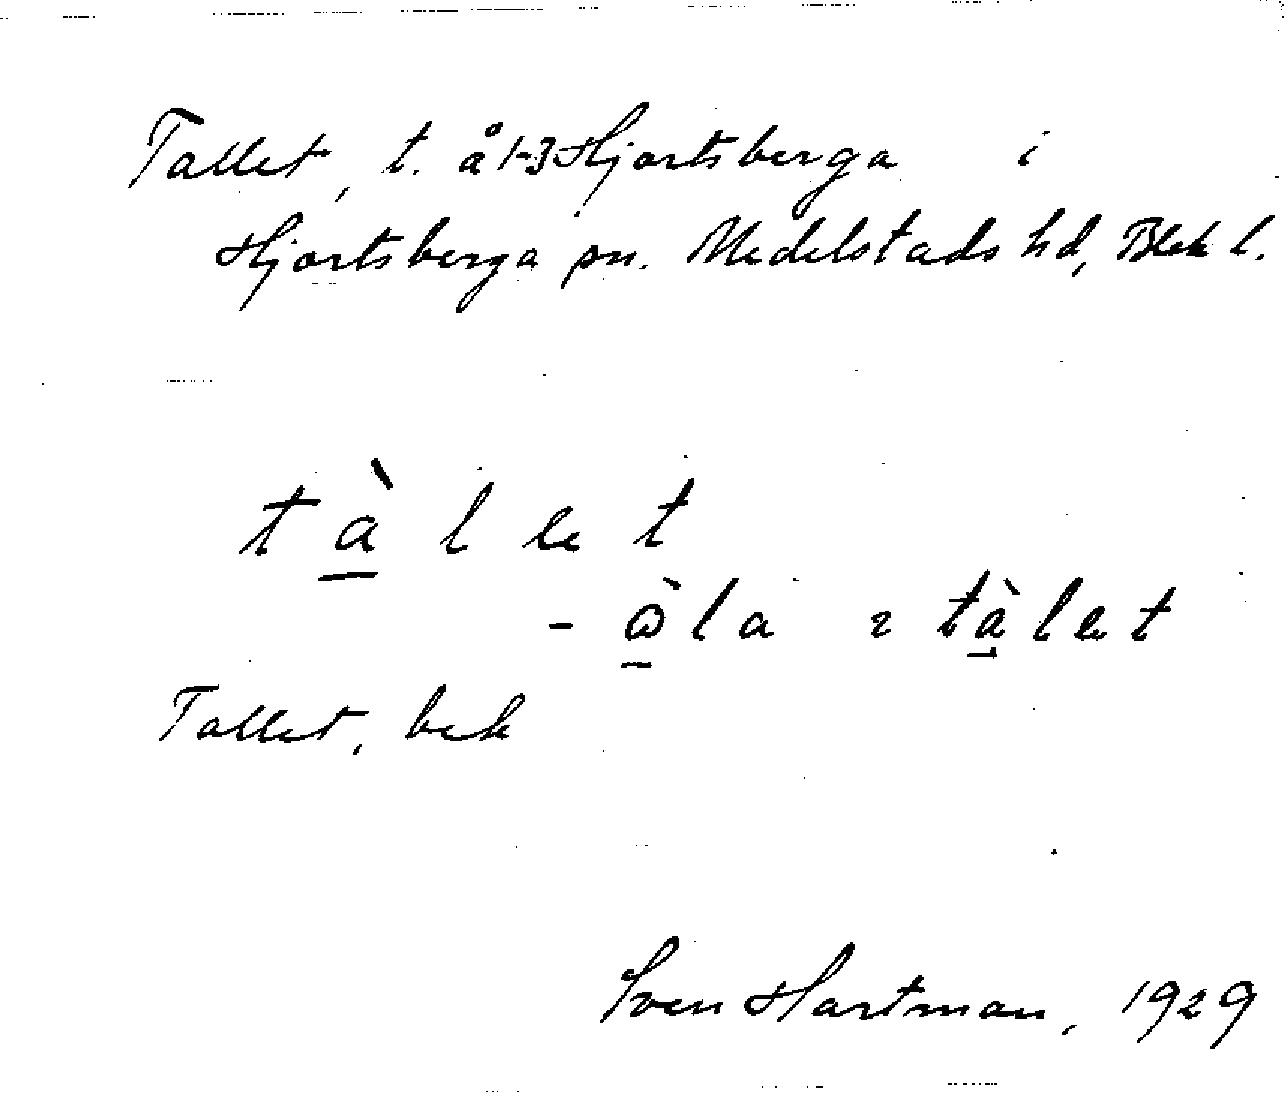 Tallet, t. å 1-3 Hjortsberga i
Hjortsberga sn. Medelstads hd, Blek l.
tà̲let
- ò̲la i tà̲let
Tallet, bek
Sven Hartman, 1929